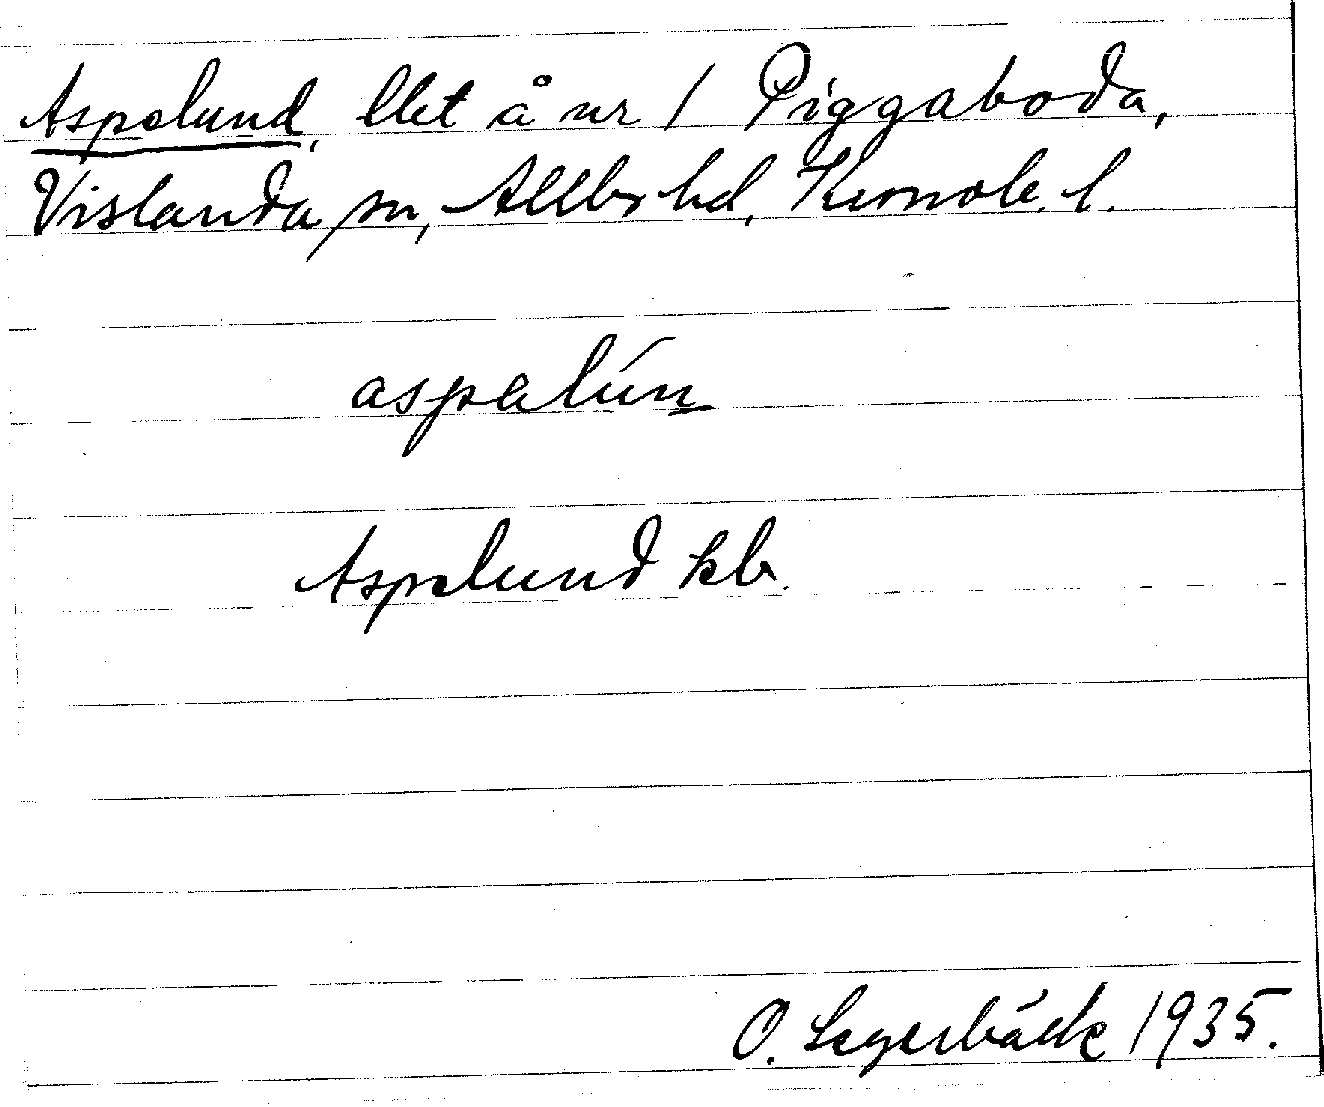 Aspelund, llet å nr 1 Piggaboda,
Vislanda sn, Allbo hd, Kronob. l.
aspalún
Aspelund kb.
O. Segerbäck 1935.